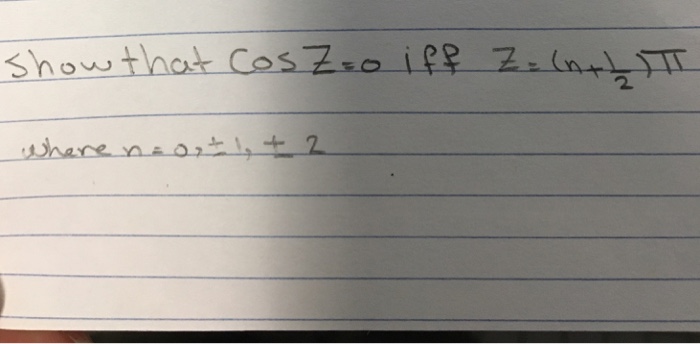 Show that Cos Z=0 iff Z=(n+1/2)π
where n=0,±1,±2